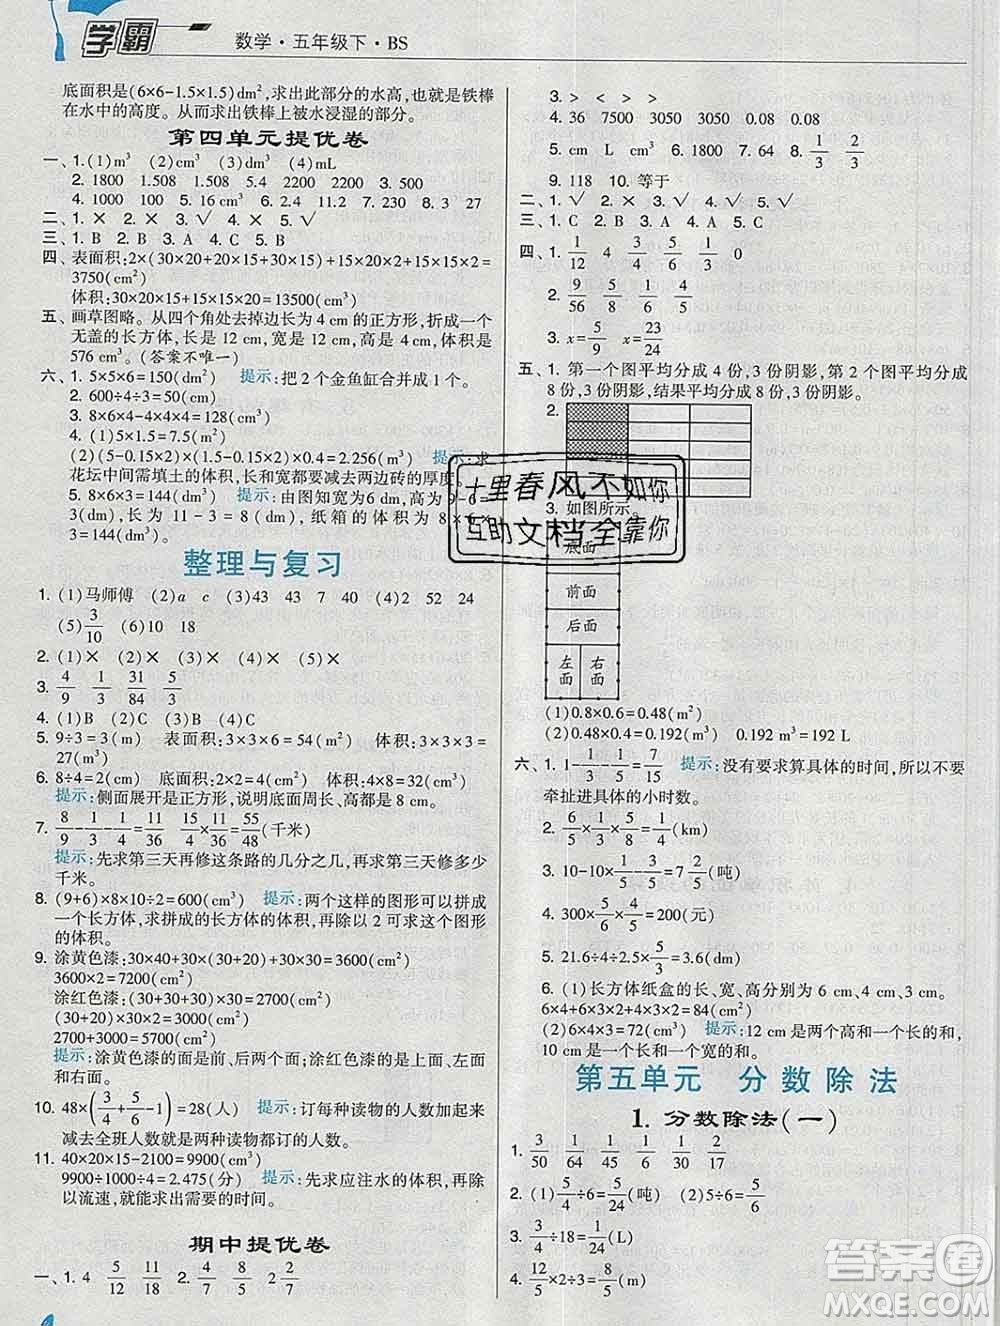 学霸 数学·五年级下·BS
底面积是(6×6-1.5×1.5)dm²,求出此部分的水高,也就是铁棒
在水中的高度。从而求出铁棒上被水浸湿的部分。
第四单元提优卷
一、1.(1)m³ (2)cm³ (3)dm³ (4)mL
2. 1800 1.508 1.508 20 20 3. 500
4. 1000 100 5. 16 cm³ 6. 2.4 11.2 7. 230 8. 3 27
二、1. × 2. × 3. √ 4. × 5. √
三、1. B 2. B 3. A 4. C 5. B
四、表面积:2×(30×20+20×15+30×15)+15×20×2+15×20×2=
3750(cm²)
体积:30×20×15+15×20×15=13500(cm³)
五、画草图略。从四个角处去掉边长为4 cm的正方形,折成一个
无盖的长方体,长是12 cm,宽是12 cm,高是4 cm,体积是
576 cm³。(答案不唯一)
六、1. 5×5×6=150(dm²) 提示:把2个金鱼缸合并成1个。
2. 600÷4÷3=50(cm)
3. 8×6×4-4×4×4=128(cm³)
4. (1)5×1.5=7.5(m²)
(2)(5-0.15×2)×(1.5-0.15×2)×0.4=2.256(m³) 提示:求
花坛中间需填土的体积,长和宽都要减去两边砖的厚度。
5. 8×6×3=144(dm³) 提示:由图知宽为6 dm,高为9-6=3
(dm),长为11-3=8(dm),纸箱的体积为8×6×
3=144(dm³)。
整理与复习
1. (1)马师傅 (2)a c (3)43 43 7 40 (4)2 52 24
(5)3/10 (6)10 18
2. (1)× (2)× (3)× (4)× (5)×
3. 4/9 1/3 31/84 5/3
4. (1)B (2)C (3)B (4)D
5. 9÷3=3(m) 表面积:3×3×6=54(m²) 体积:3×3×3=
27(m³)
6. 8÷4=2(cm) 底面积:2×2=4(cm²) 体积:4×8=32(cm³)
提示:侧面展开是正方形,说明底面周长、高都是8 cm。
7. 8/9-1/3-1/4=11/36 15/4×11/36=55/48(千米)
提示:先求第三天再修这条路的几分之几,再求第三天修多少
千米。
8. (9+6)×8×10÷2=600(cm³) 提示:两个这样的图形可以拼成
一个长方体,求拼成的长方体的体积,再除以2可求这个图形
的体积。
9. 涂黄色漆:30×40+30×(30×2)+(40-30)×30×2=3600(cm²)
3600×2=7200(cm²)
涂红色漆:(30+30+30)×30=2700(cm²)
(30+30+40)×30=3000(cm²)
2700+3000=5700(cm²)
提示:涂黄色漆的面是前面、后面;涂红色漆的是上面、左面
和右面。
10. 48×(3/4+5/6-1)=28(人) 提示:订每种读物的人数加起来
减去全班人数就是两种读物都订的人数。
11. 40×20×15-2100=9900(cm³)
9900÷1000÷4=2.475(分) 提示:先求应注水的体积,再除
以流速,就能求出需要的时间。
期中提优卷
一、1. 4 5/12 11/18 2. 4/5 8/5 2/9
3. > < > <
4. 36 7500 3050 3050 0.08 0.08
5. cm L cm³ 6. 1800 7. 64 8. 1/3 2/3
9. 118 10. 等于
二、1. √ 2. × 3. √ 4. √ 5. √
三、1. C 2. B 3. A 4. C 5. B
四、1. 1/12 4 3/4 5/4 1/3 0
2. 9/56 5/8 1/6 31/56
3. x=5/9 x=23/24
五、1. 第一个图平均分成4份,3份阴影,第2个图平均分成
8份,3份阴影,结果平均分成8份,3份阴影。
2.
3. 如图所示。
底面
前面
后面
左面 右面
(1)0.8×0.6=0.48(m²)
(2)0.48×0.4=0.192(m³) 0.192 m³=192 L
六、1. 1-1/5-1/3=7/15 提示:没有要求算具体的时间,所以不要
牵扯进具体的小时数。
2. 6/5×1/3×1/4=1/10(km)
3. 10-10×1/5-1/5=39/5(吨)
4. 300×5/6×4/5=200(元)
5. 21.6÷4-6/5×3/2=3.6(dm)
6. (1)长方体纸盒的长、宽、高分别为6 cm、4 cm、3 cm。
6×4×2+6×3×2+4×3×2=108(cm²)
(2)6×4×3=72(cm³) 提示:12 cm是两个高和一个长的和,
10 cm是一个长和一个宽的和。
第五单元 分数除法
1. 分数除法(一)
1. 3/50 11/64 1/35 1/6 1/30 2/17
2. (1)5/4÷6=5/24(吨) (2)5÷6=5/6
3. 3/4÷18=1/24(L)
4. 5/4×2÷3=5/6(m)
十里春风不如你
互助文档全靠你
答案圈
MXQE.COM